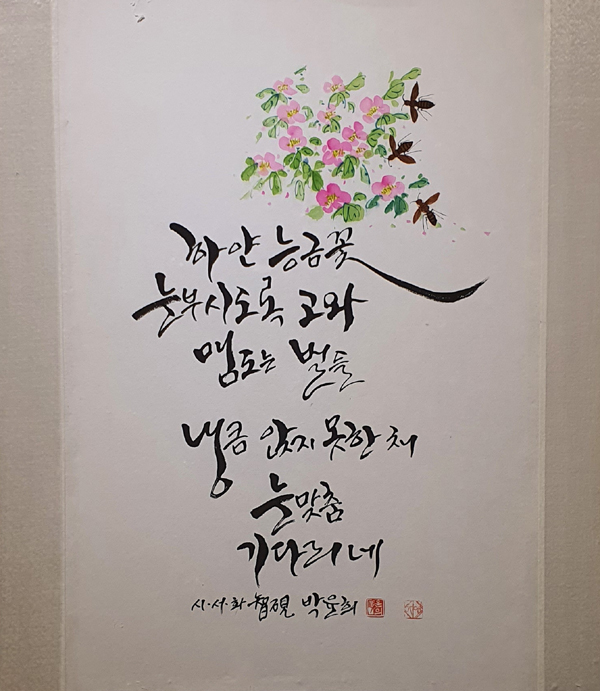 하얀 능금꽃
눈부시도록 고와
맴도는 벌들
냉큼 앉지 못한 채
눈맞춤
기다리네
시·서·화 智硯 박윤희